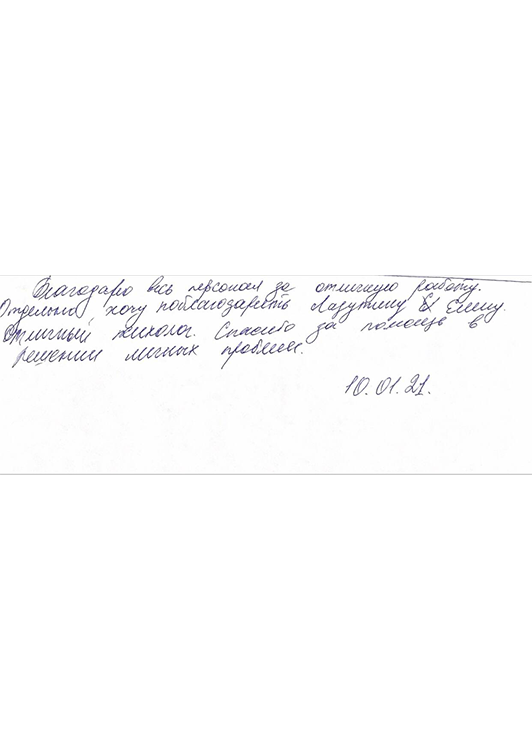 Благодарю весь персонал за отличную работу.
Отдельно хочу поблагодарить Лазутину Елену.
Отличный психолог. Спасибо за помощь в
решении личных проблем.
10.01.21.